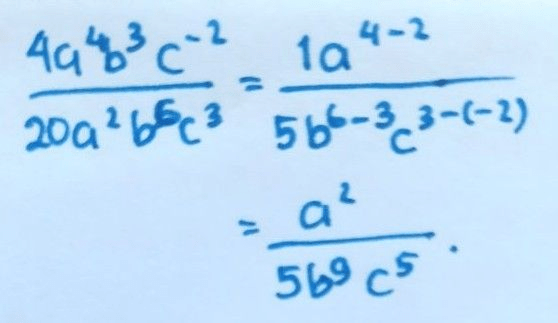 4a⁴b³c⁻² / 20a²b⁶c³ = 1a⁴⁻² / 5b⁶⁻³c³⁻⁽⁻²⁾
= a² / 5b⁹c⁵.